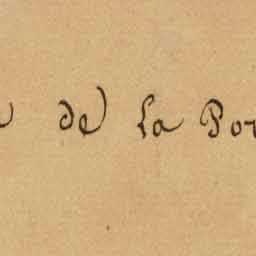 de la Por